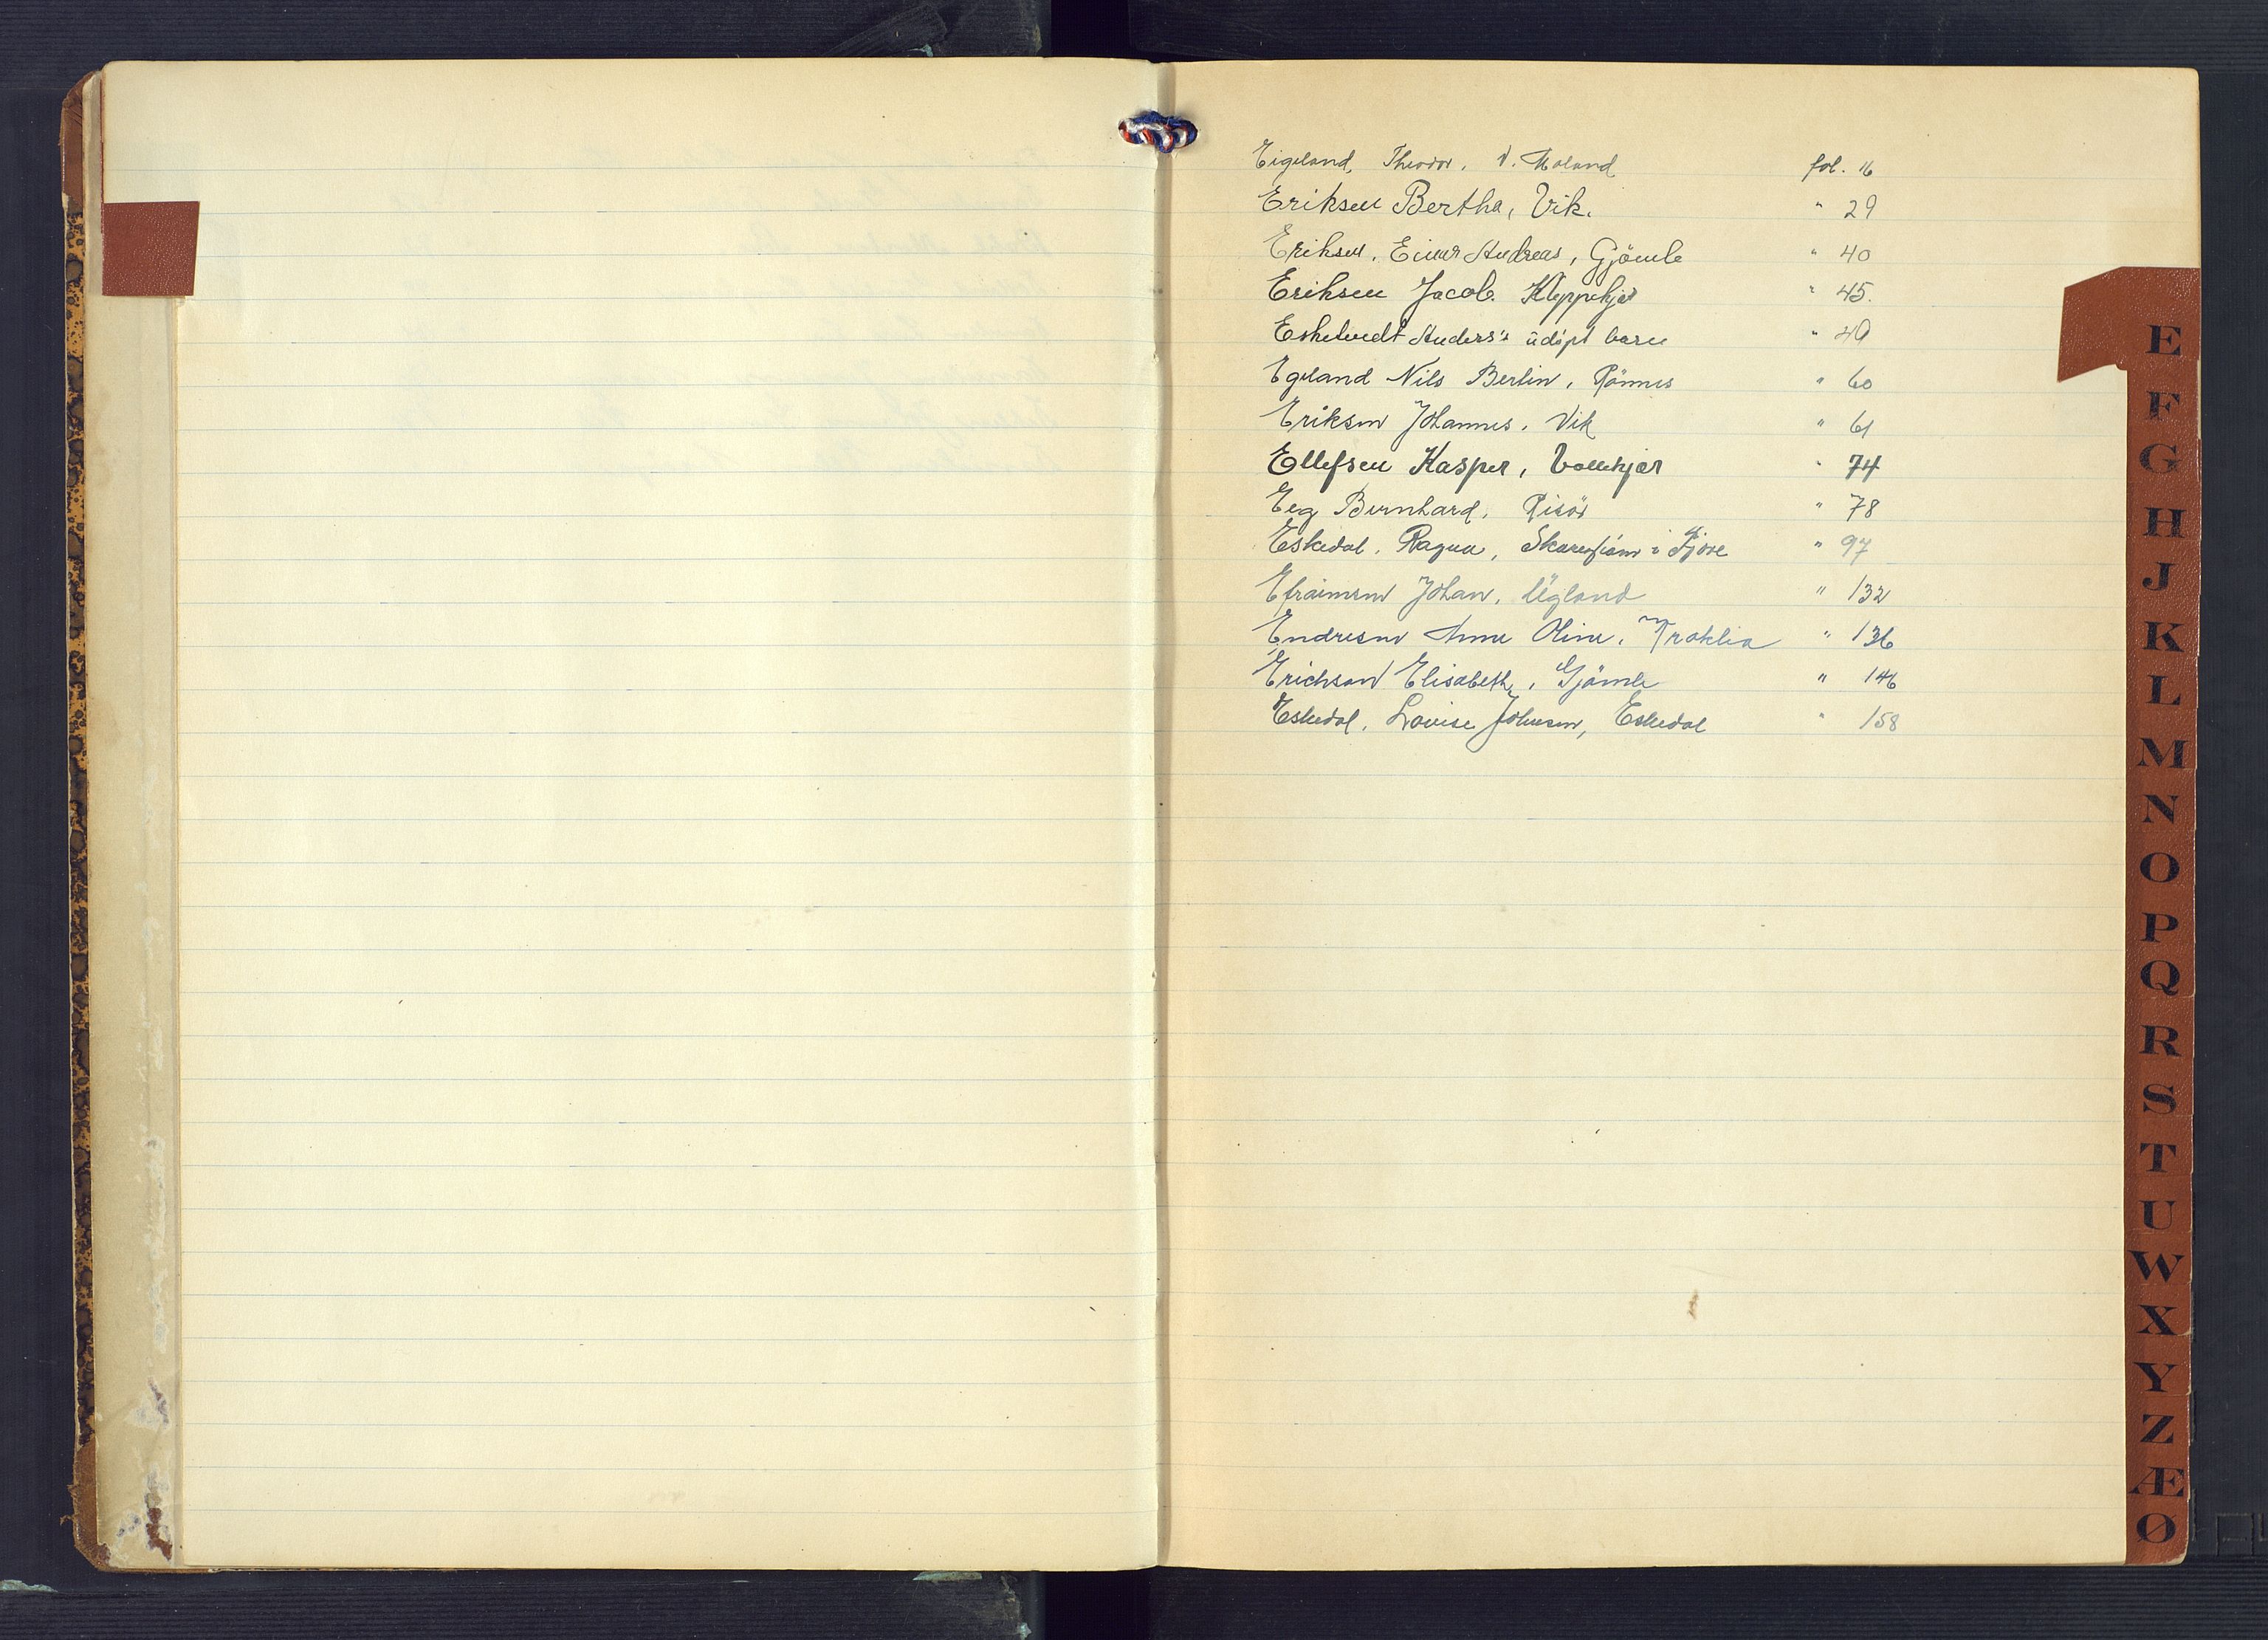 Eigeland, Theodor, V. Moland fol. 16
Eriksen Bertha, Vik. " 29
Eriksen, Einar Andreas, Gjömle " 40
Eriksen Jacob Kleppekjær " 45.
Eskelundt Anders's udöpt barn " 49
Egeland Nils Berlin, Rönnes " 60
Eriksen Johannes, Vik " 61
Ellefsen Kasper, Vollekjær " 74
Eeg Bernhard, Risör " 78
Eskedal, Ragna, i Fjære " 97
Efraimsen Johan, Ugland " 132
Endresen Anne Oline, Froklia " 136
Erichsen Elisabeth, Gjömle " 146
Eskedal, Lovise Johnsen, Eskedal " 158
E
F
G
H
J
K
L
M
N
O
P
Q
R
S
T
U
W
X
Y
Z
Æ
Ø